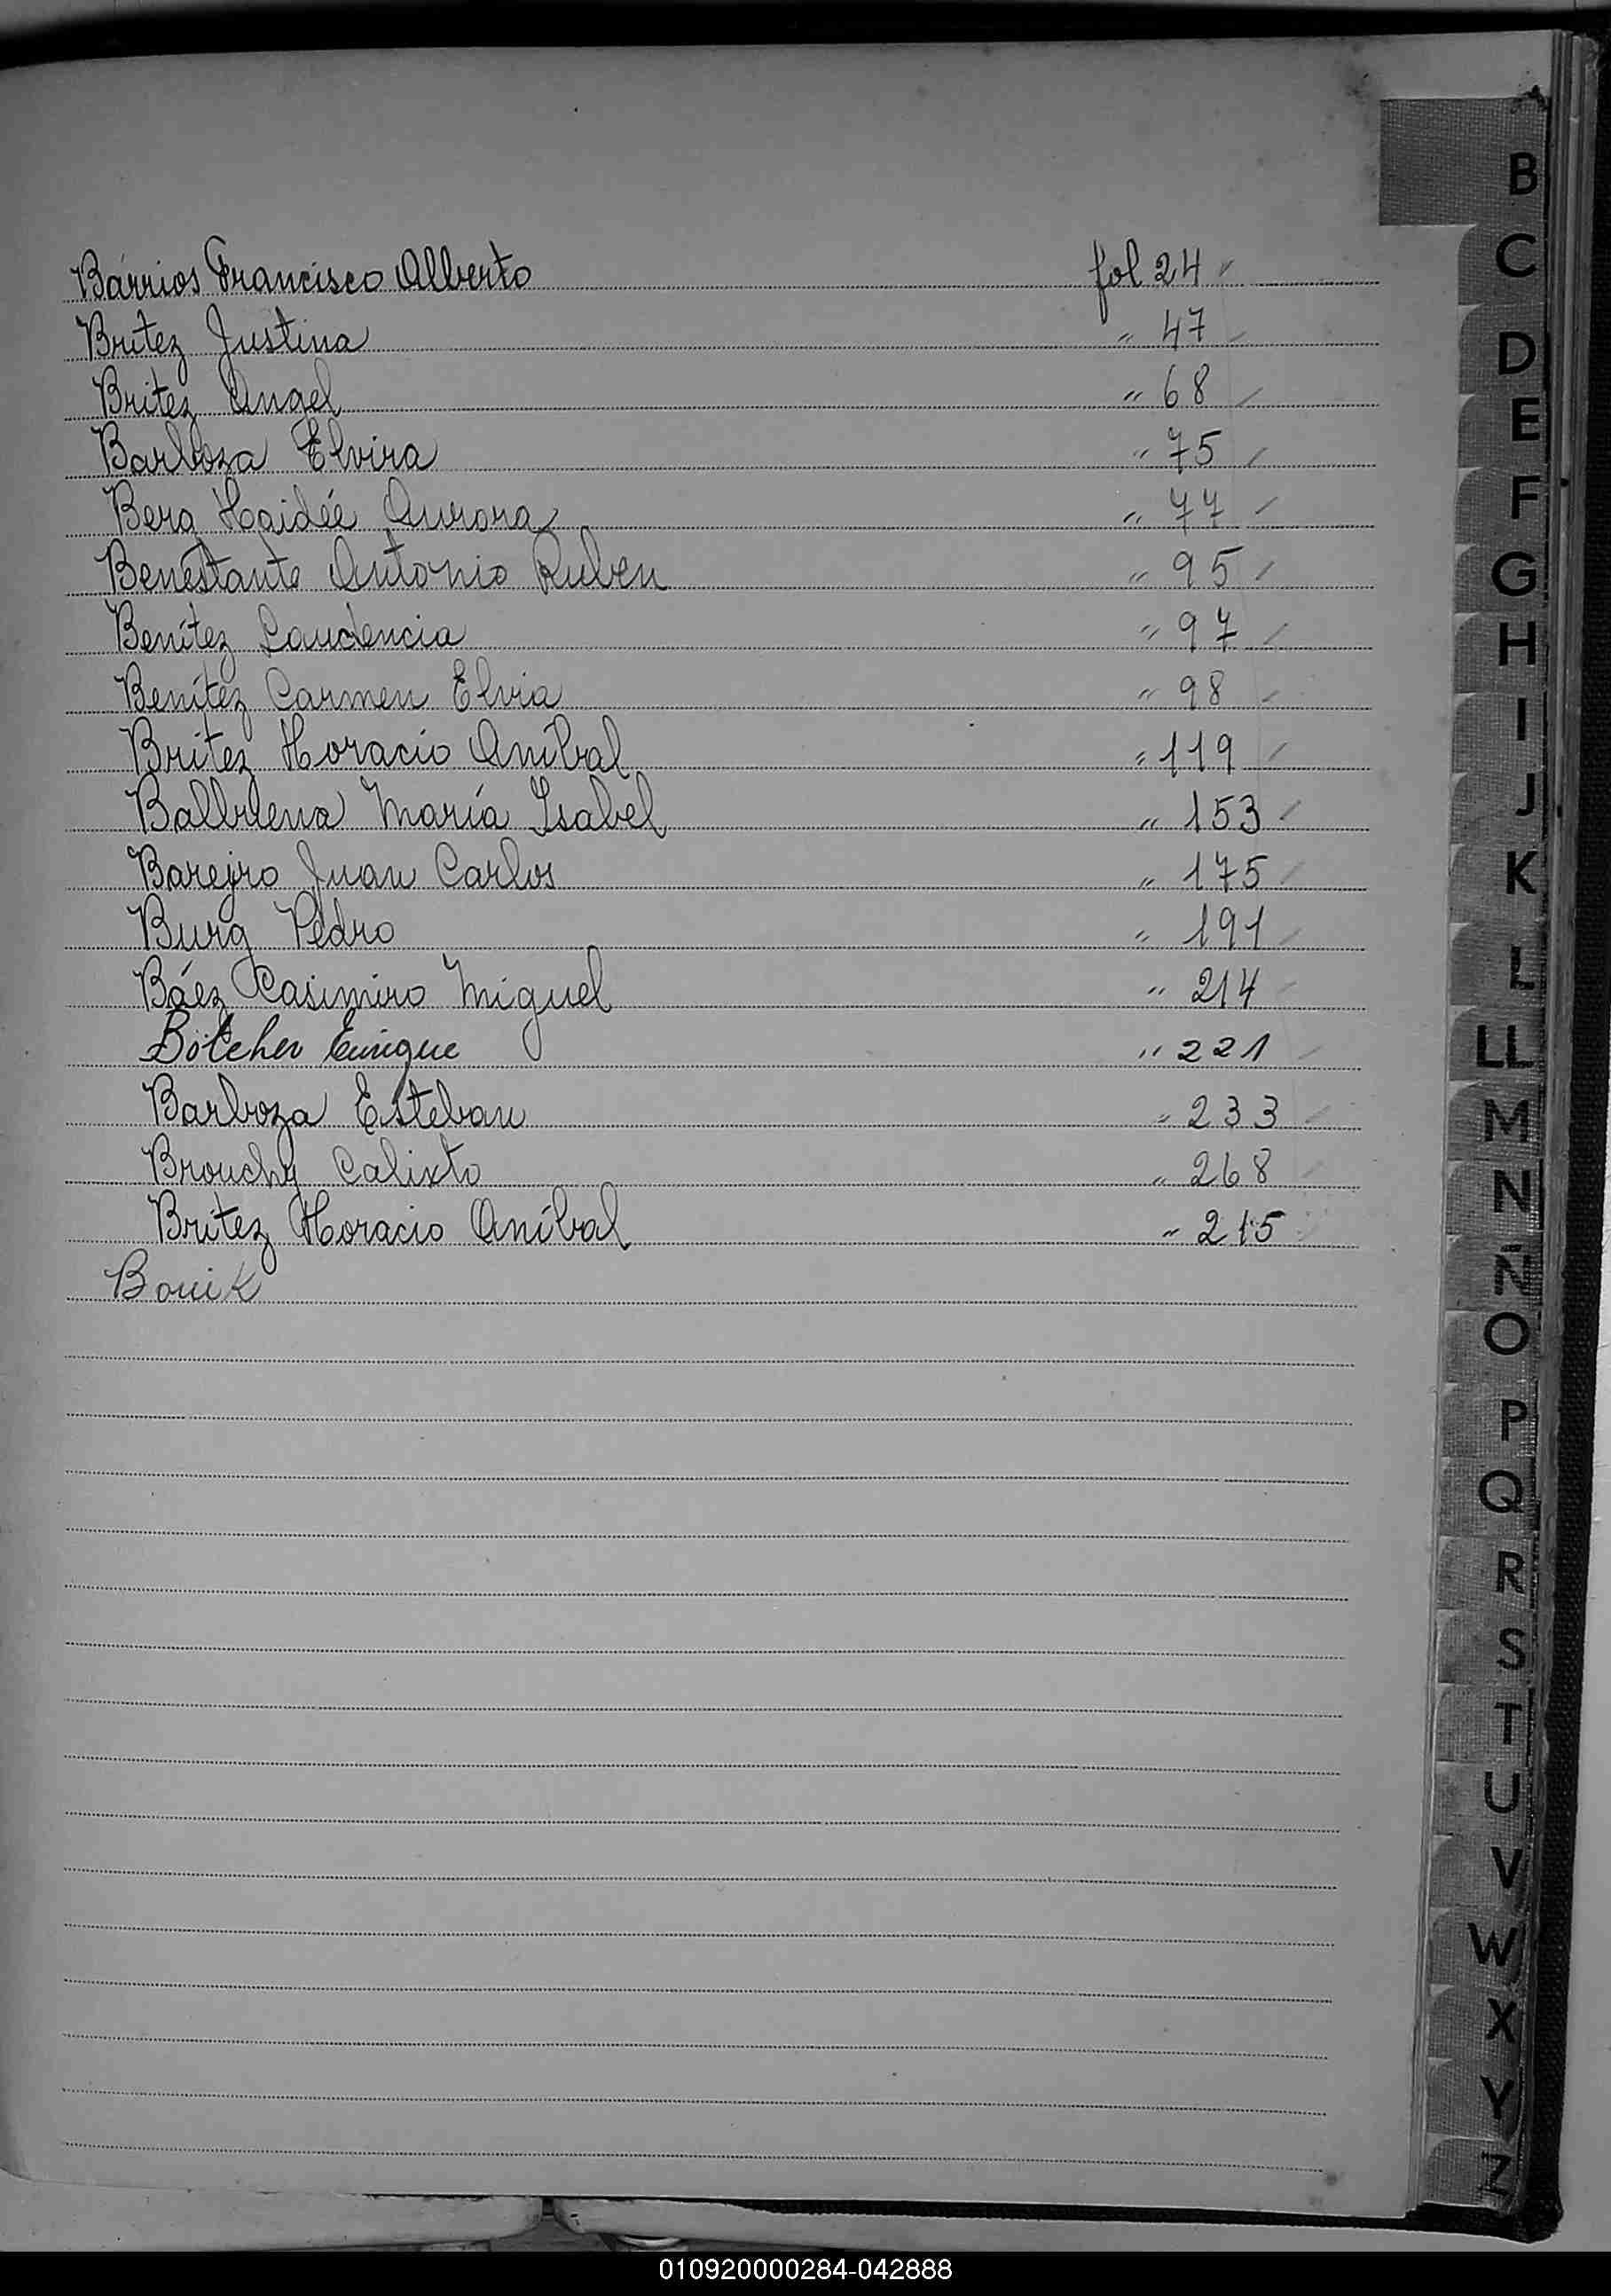 Bárrios Francisco Alberto fol 24
Britez Justina " 47
Britez Angel " 68
Barboza Elvira " 75
Berg Haidée Aurora " 77
Benestante Antonio Ruben " 95
Benítez Laudencia " 97
Benítez Carmen Elvia " 98
Britez Horacio Aníbal " 119
Balbuena María Isabel " 153
Bareyro Juan Carlos " 175
Burg Pedro " 191
Báez Casimiro Miguel " 214
Bötcher Enrique " 221
Barboza Esteban " 233
Brouchy Calixto " 268
Britez Horacio Aníbal " 215
Bouik
B
C
D
E
F
G
H
I
J
K
L
LL
M
N
Ñ
O
P
Q
R
S
T
U
V
W
X
Y
Z
010920000284-042888